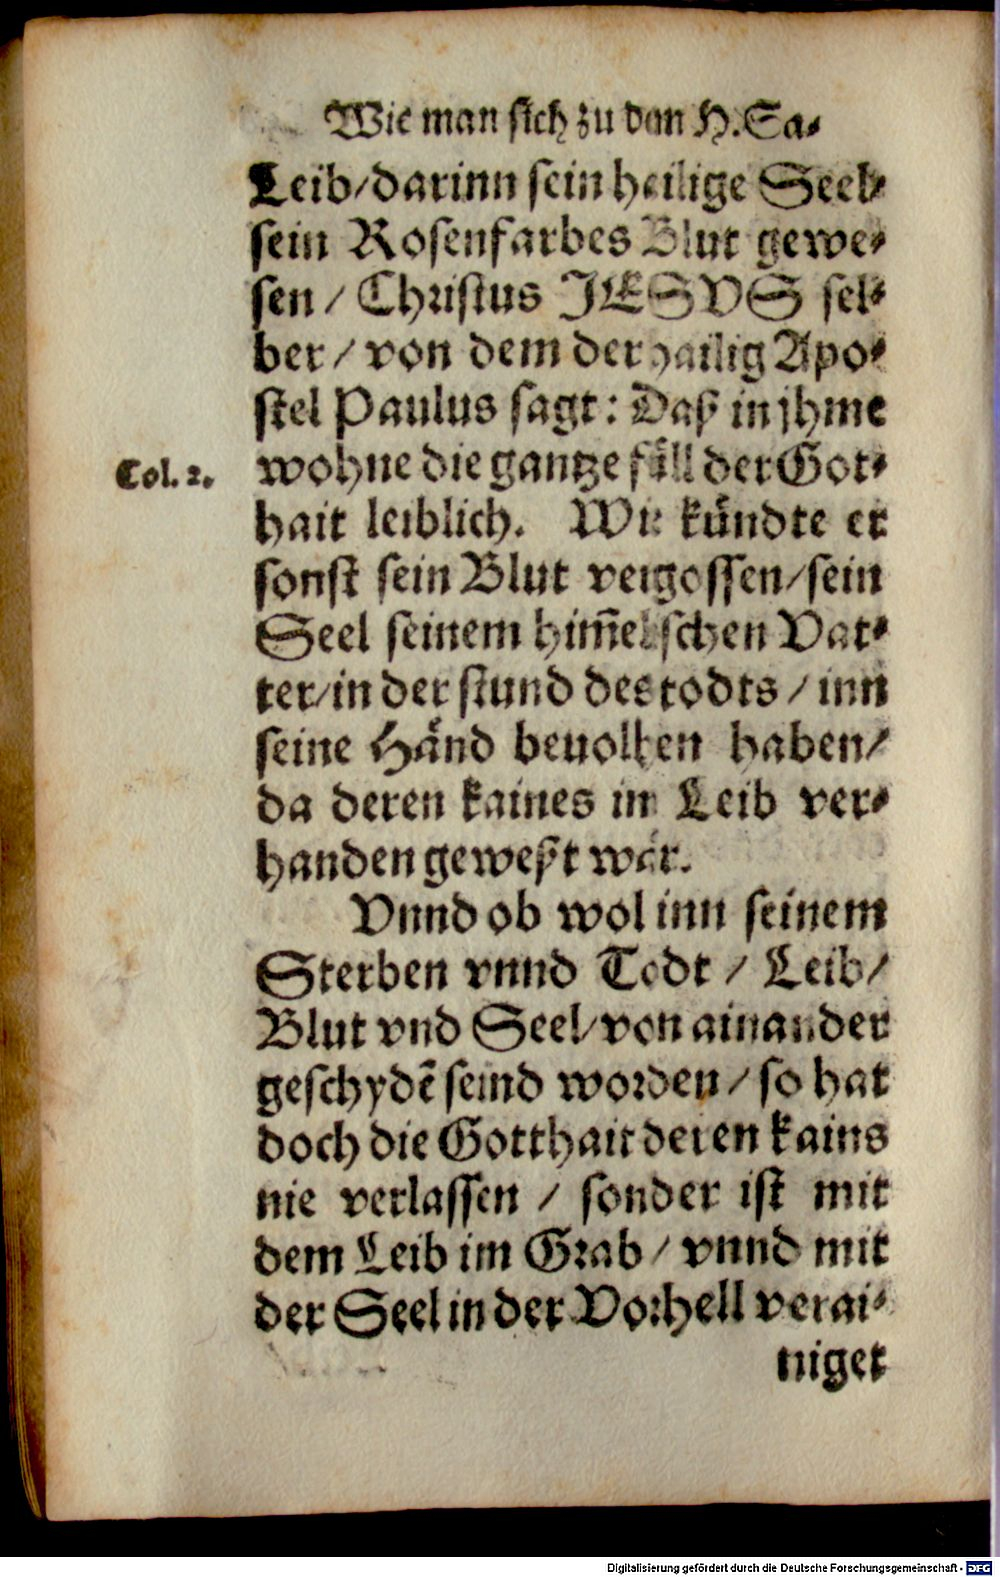 Wie man sich zu dem H. Sa⸗
Leib/darinn sein heilige Seel⸗
sein Rosenfarbes Blut gewe⸗
sen / Christus JESVS sel⸗
ber / von dem der hailig Apo⸗
stel Paulus sagt: Daß in jhme
Col. 2. wohne die gantze füll der Got⸗
hait leiblich. Wie kündte er
sonst sein Blut vergossen/sein
Seel seinem him̃elischen Vat⸗
ter/in der stund des todts / inn
seine Händ beuolhen haben/
da deren kaines im Leib ver⸗
handen geweßt wär.
Vnnd ob wol inn seinem
Sterben vnnd Todt / Leib/
Blut vnd Seel/von ainander
geschydẽ seind worden / so hat
doch die Gotthait deren kains
nie verlassen / sonder ist mit
dem Leib im Grab / vnnd mit
der Seel in der Vorhell verai⸗
niget
Digitalisierung gefördert durch die Deutsche Forschungsgemeinschaft - DFG